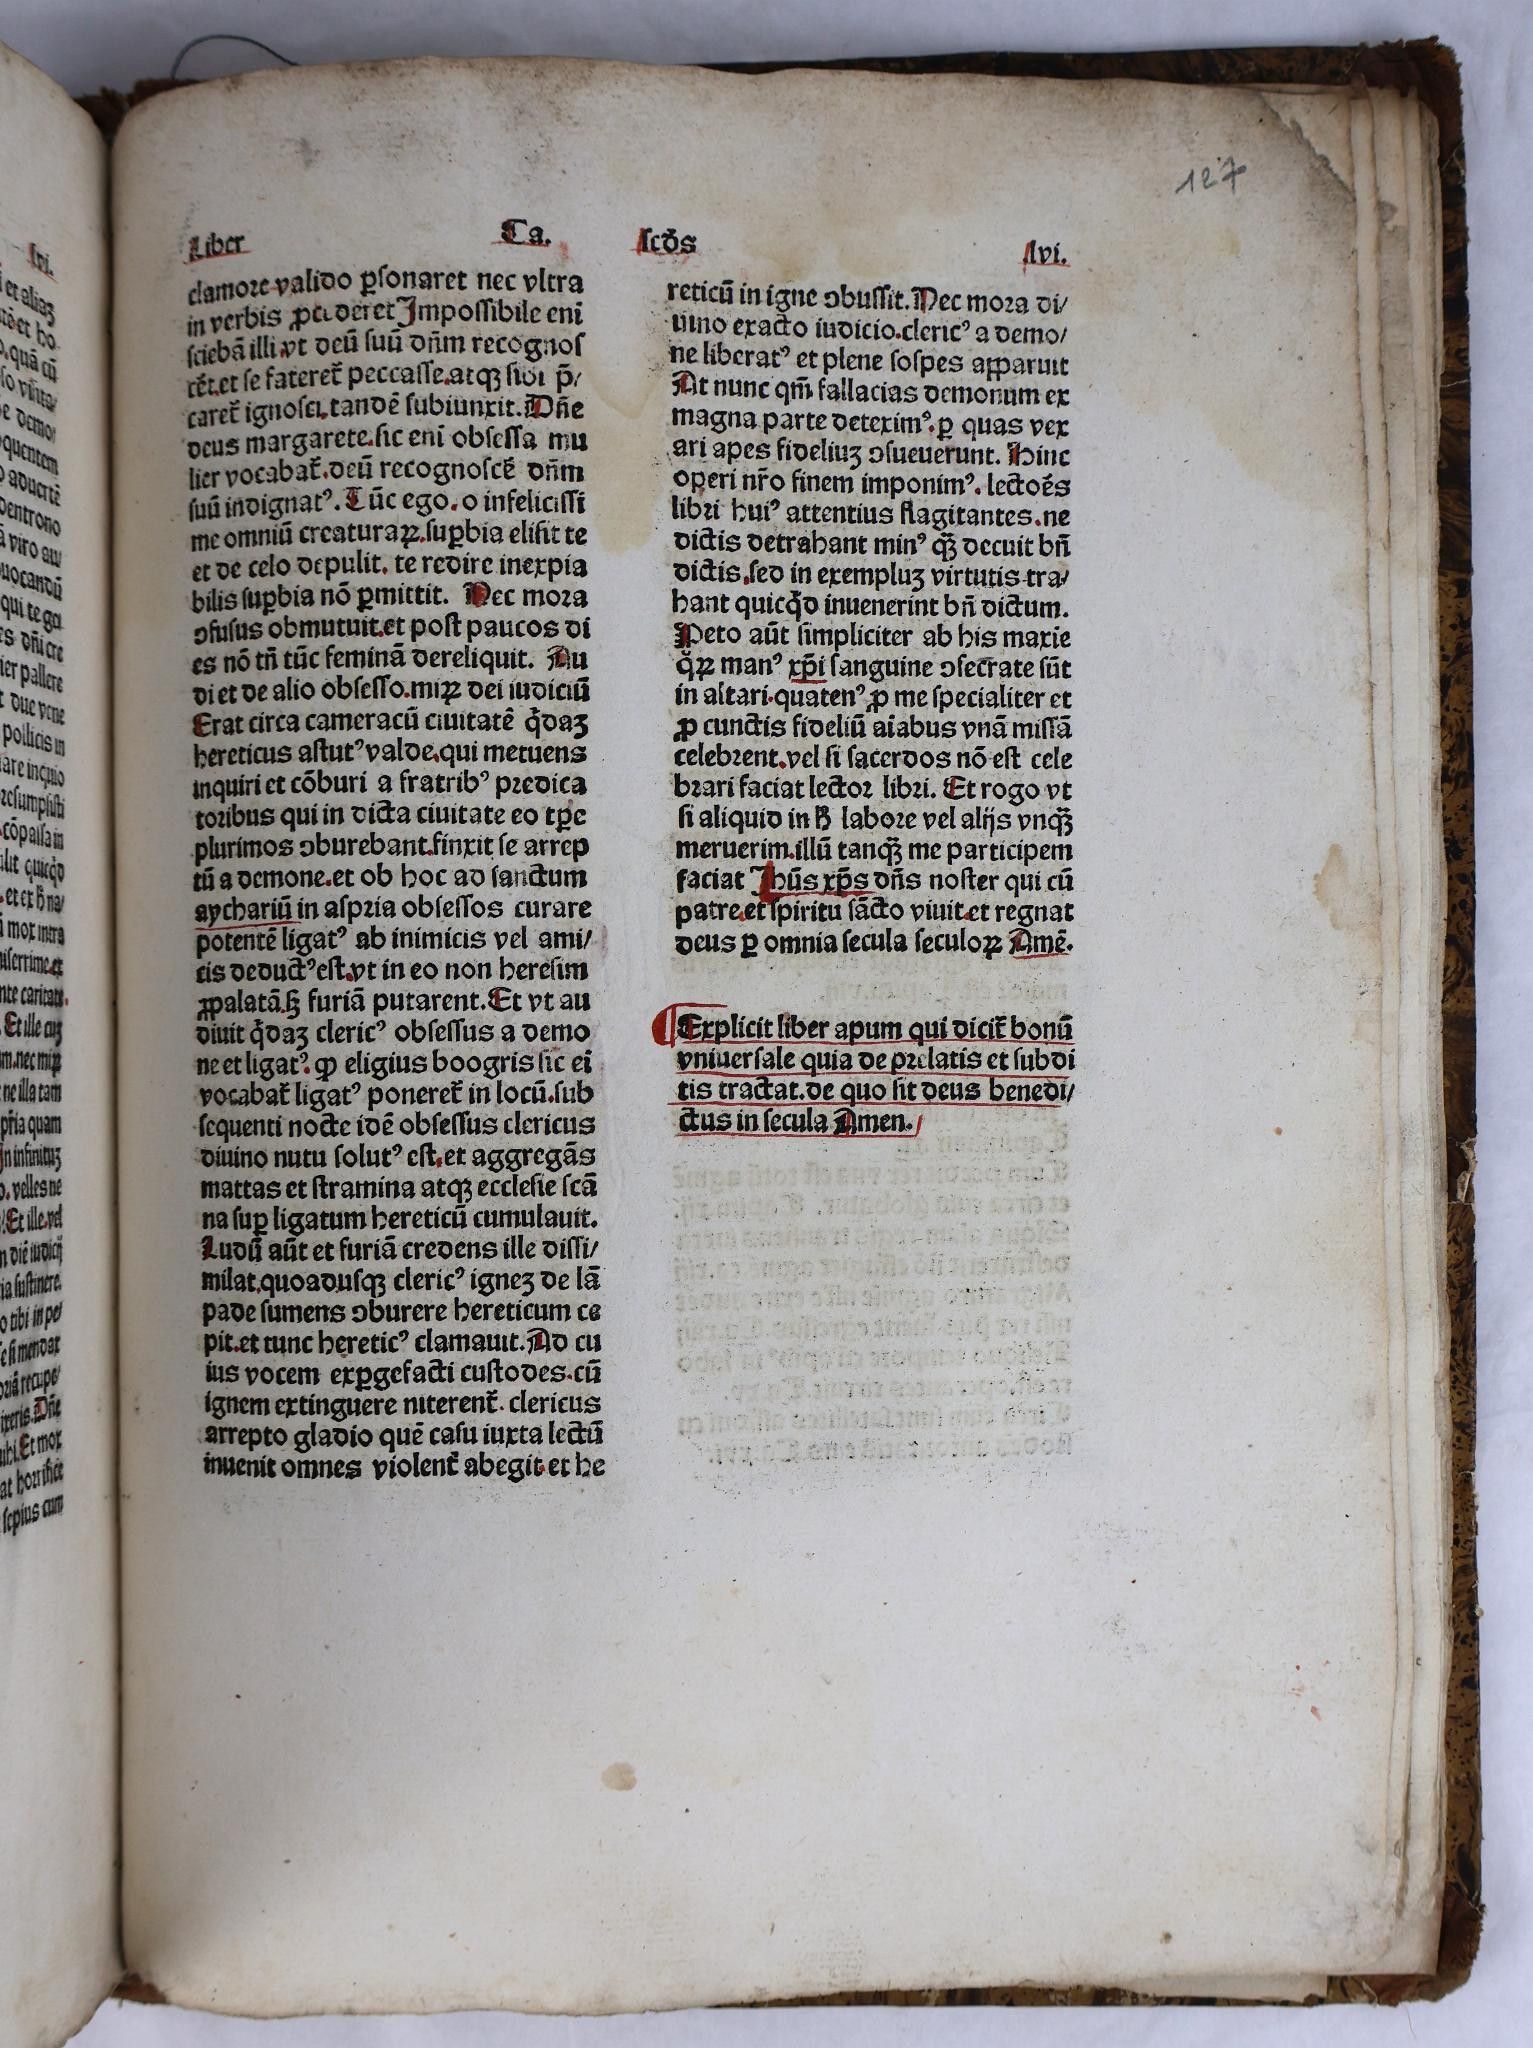 127
Liber Ca. scđs lvi.
clamore valido ꝑsonaret nec vltra
in verbis ꝓcederet Impossibile eni
sciebā illi.vt deū suū dn̄m recognos
cēt.et se fateret᷑ peccasse.atqꝫ sibi p̄/
caret᷑ ignosci.tandē subiunxit. Dn̄e
deus margarete.sic eni obsessa mu
lier vocabat᷑.deū recognoscē dn̄m
suū indignatꝰ. Tūc ego.o infelicissi
me omniū creaturaꝝ.suꝑbia elisit te
et de celo depulit. te redire inexpia
bilis suꝑbia nō ꝑmittit. Nec mora
ↄfusus obmutuit.et post paucos di
es nō tn̄ tūc feminā dereliquit. Au
di et de alio obsesso.miꝝ dei iudiciū
Erat circa cameracū ciuitatē q̇daꝫ
hereticus astutꝰ valde.qui metuens
inquiri et cōburi a fratribꝰ predica
toribus qui in dicta ciuitate eo tꝑe
plurimos ↄburebant.finxit se arrep
tū a demone.et ob hoc ad sanctum
aychariū in aspria obsessos curare
potentē ligatꝰ ab inimicis vel ami/
cis deductꝰ est.vt in eo non heresim
ꝓpalatā.ꝫ furiā putarent. Et vt au
diuit q̇daꝫ clericꝰ obsessus a demo
ne et ligatꝰ. ꝙ eligius boogris sic ei
vocabat᷑ ligatꝰ poneret᷑ in locū.sub
sequenti nocte idē obsessus clericus
diuino nutu solutꝰ est.et aggregās
mattas et stramina atqꝫ ecclesie scā
na suꝑ ligatum hereticū cumulauit.
Ludū aūt et furiā credens ille dissi/
milat.quoadusqꝫ clericꝰ igneꝫ de lā
pade sumens ↄburere hereticum ce
pit.et tunc hereticꝰ clamauit. Ad cu
ius vocem exꝑgefacti custodes.cū
ignem extinguere niterent᷑. clericus
arrepto gladio quē casu iuxta lectū
inuenit omnes violent᷑ abegit.et he
reticū in igne ↄbussit. Nec mora di/
uino exacto iudicio.clericꝰ a demo/
ne liberatꝰ et plene sospes apparuit
At nunc qm̄ fallacias demonum ex
magna parte deteximꝰ.ꝑ quas vex
ari apes fideliuꝫ ↄsueuerunt. Hinc
operi nr̄o finem imponimꝰ. lectoēs
libri huiꝰ attentius flagitantes.ne
dictis detrahant minꝰ qꝫ̄ decuit bn̄
dictis.sed in exempluꝫ virtutis tra/
hant quicq̇d inuenerint bn̄ dictum.
Peto aūt simpliciter ab his maxie
q̊ꝝ manꝰ xp̄i sanguine ↄsecrate sūt
in altari.quatenꝰ ꝓ me specialiter et
ꝓ cunctis fideliū aīabus vnā missā
celebrent.vel si sacerdos nō est cele
brari faciat lector libri. Et rogo vt
si aliquid in ħ labore vel alijs vnqꝫ̄
meruerim.illū tanqꝫ̄ me participem
faciat Ihūs xp̄s dn̄s noster qui cū
patre.et spiritu sācto viuit.et regnat
deus ꝑ omnia secula seculoꝝ Amē.
¶Explicit liber apum qui dicit᷑ bonū
vniuersale quia de prelatis et subdi
tis tractat.de quo sit deus benedi/
ctus in secula Amen.